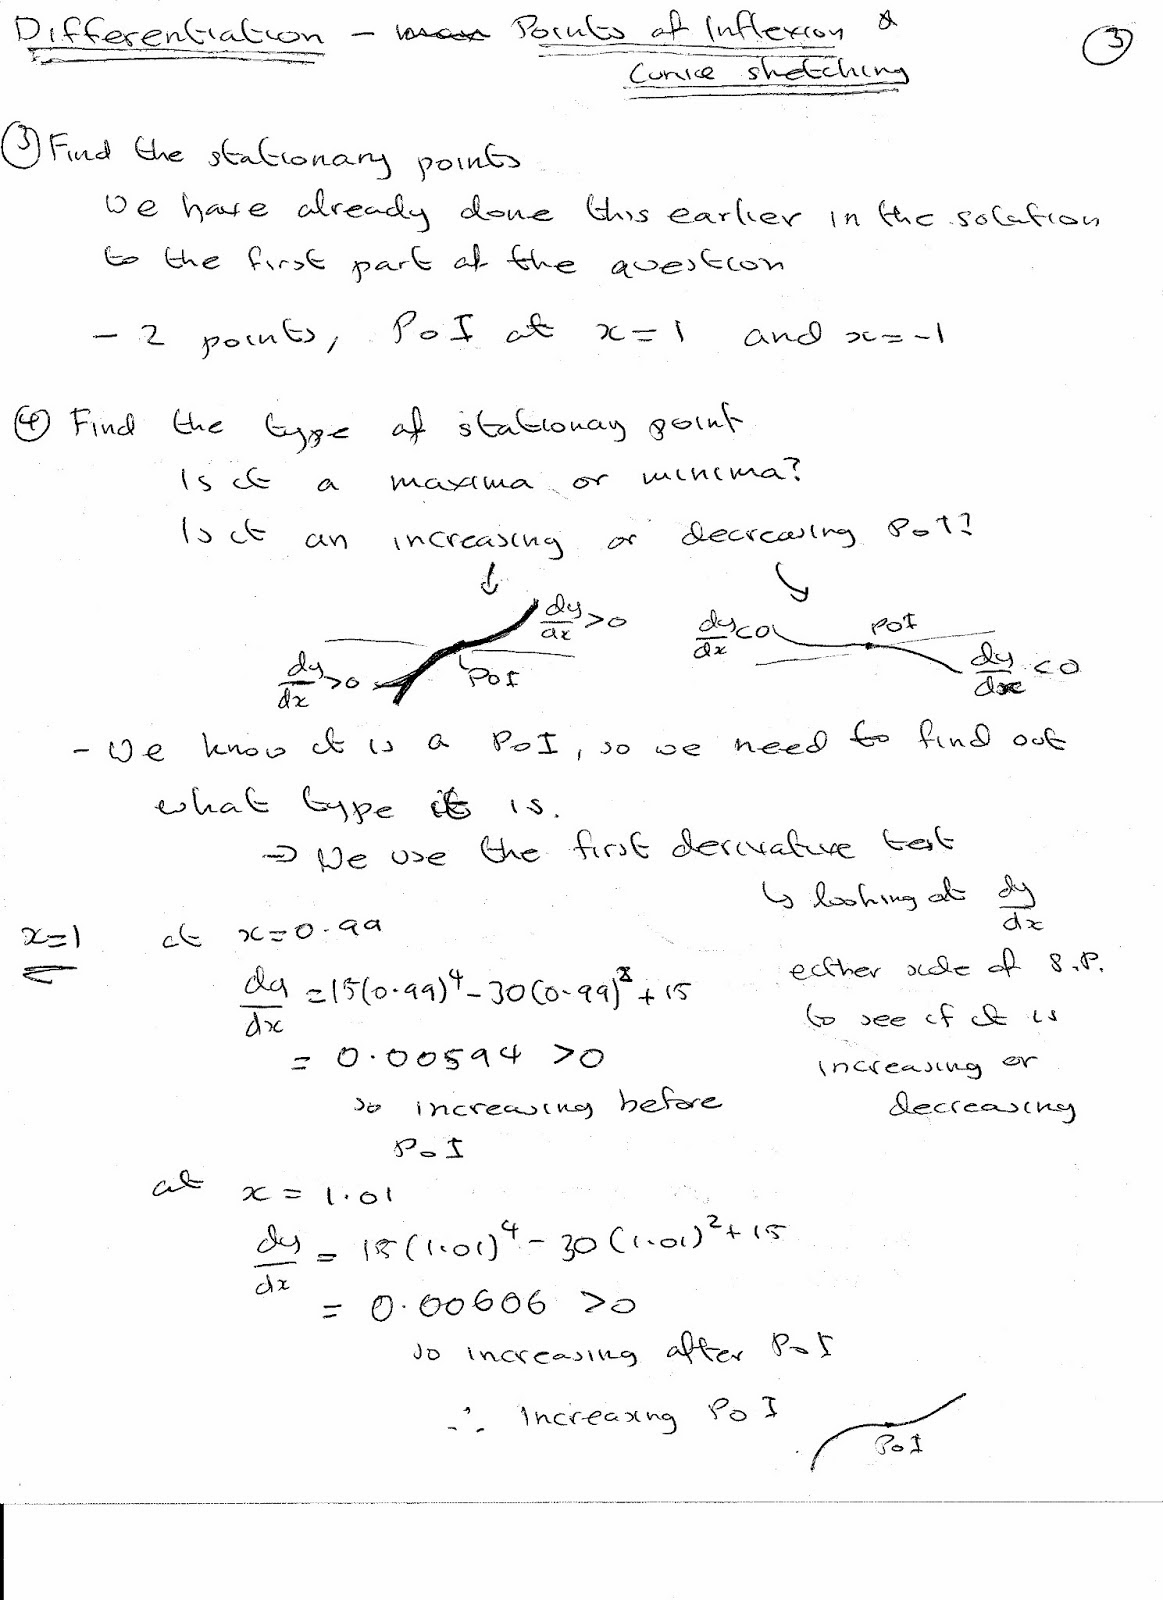 Differentiation - Points of Inflexion &
Curve sketching
③
③ Find the stationary points
We have already done this earlier in the solution
to the first part of the question
- 2 points, PoI at x=1 and x=-1
④ Find the type of stationary point
Is it a maxima or minima?
Is it an increasing or decreasing PoI?
dy/dx >0
dy/dx >0
PoI
dy/dx <0
PoI
dy/dx <0
- We know it is a PoI, so we need to find out
what type it is.
→ We use the first derivative test
↳ looking at dy/dx
either side of S.P.
to see if it is
increasing or
decreasing
x=1 at x=0.99
dy/dx =15(0.99)⁴-30(0.99)²+15
= 0.00594 >0
so increasing before
PoI
at x = 1.01
dy/dx = 15(1.01)⁴-30(1.01)²+15
= 0.00606 >0
so increasing after PoI
∴ Increasing PoI
PoI